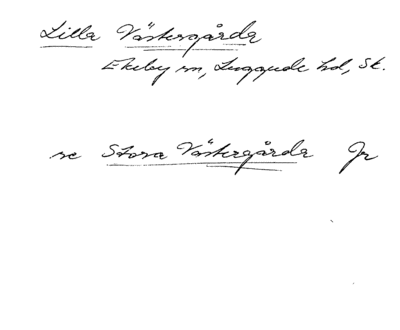 Lilla Västergårda
Ekeby sn, Luggude hd, Sk.
se Stora Västergårda Jr